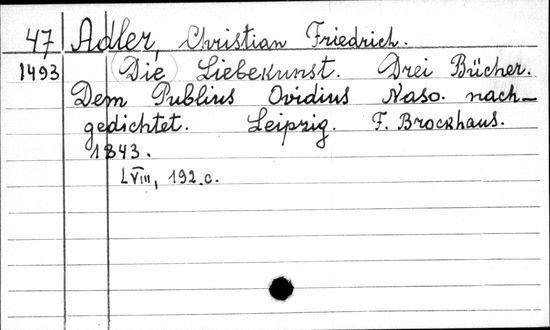 47 Adler, Christian Friedrich.
1493 (Die) Liebekunst. Drei Bücher.
Dem Publius Ovidius Naso. nach-
gedichtet. Leipzig. F. Brockhaus.
1843.
LVIII, 192.c.